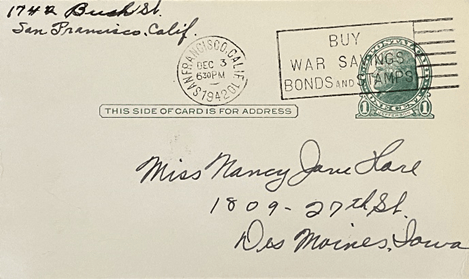 1742 Bush St.
San Francisco, Calif.
SAN FRANCISCO, CALIF.
DEC 3
630PM
1942
BUY
WAR SAVINGS
BONDS AND STAMPS
1 1
THIS SIDE OF CARD IS FOR ADDRESS
Miss Nancy Jane Hare
1809 - 27th St.
Des Moines, Iowa